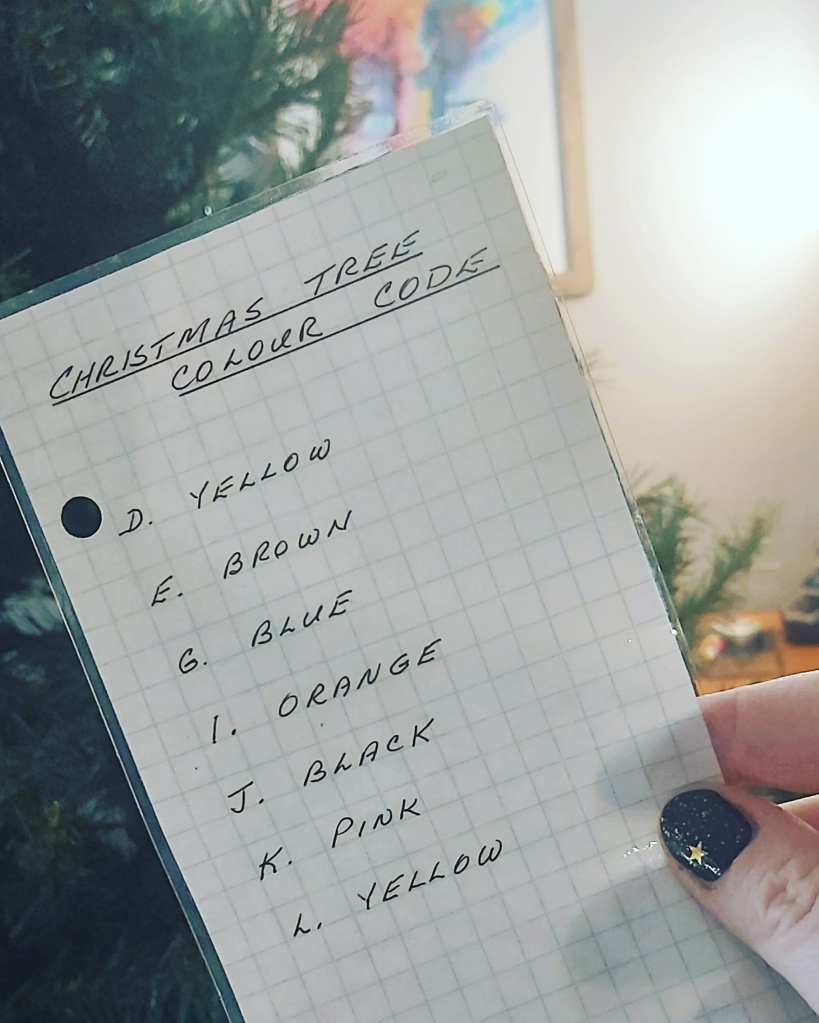 CHRISTMAS TREE
COLOUR CODE
D. YELLOW
E. BROWN
G. BLUE
I. ORANGE
J. BLACK
K. PINK
L. YELLOW